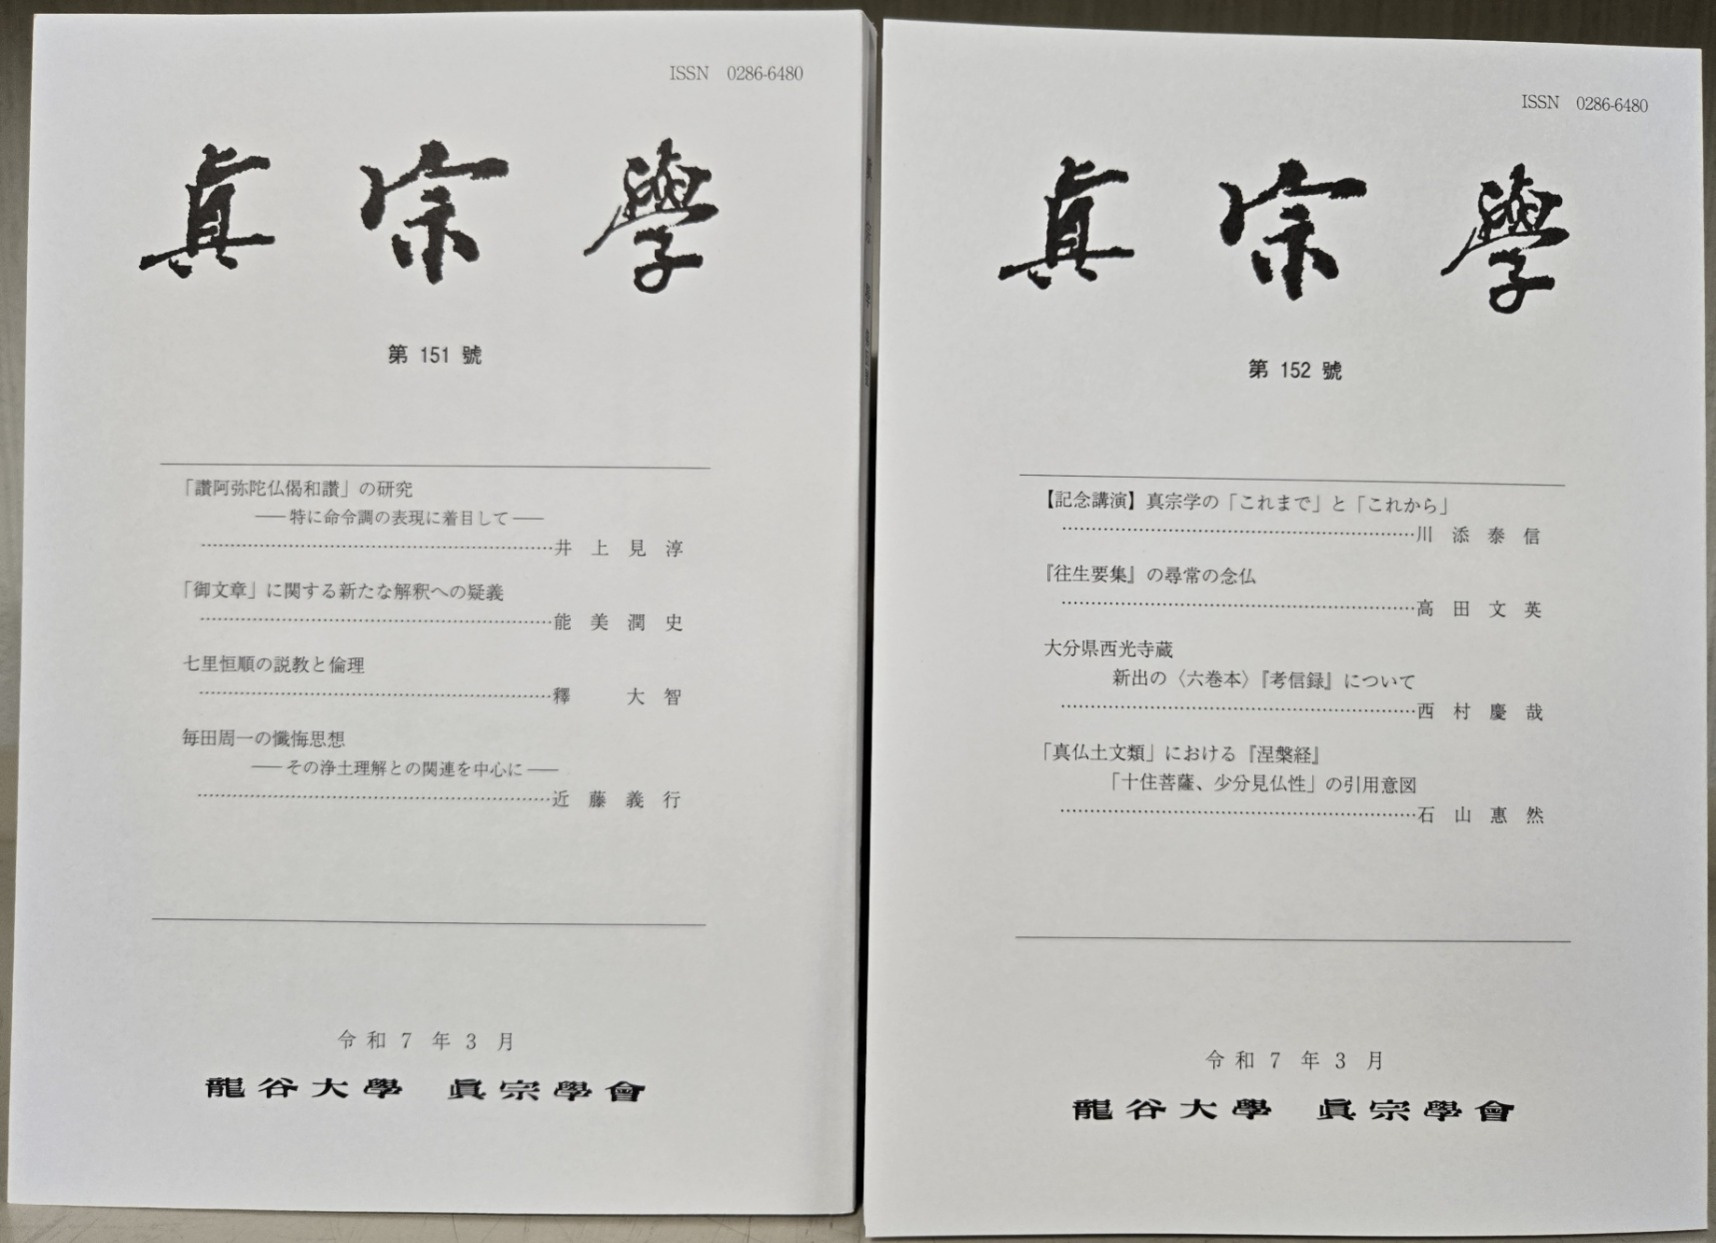 ISSN 0286-6480
眞宗學
第 151 號
「讃阿弥陀仏偈和讃」の研究
―― 特に命令調の表現に着目して ――
井上見淳
「御文章」に関する新たな解釈への疑義
能美潤史
七里恒順の説教と倫理
釋 大智
毎田周一の懺悔思想
―― その浄土理解との関連を中心に ――
近藤義行
令和 7 年 3 月
龍谷大學 眞宗學會
ISSN 0286-6480
眞宗學
第 152 號
【記念講演】真宗学の「これまで」と「これから」
川添泰信
『往生要集』の尋常の念仏
高田文英
大分県西光寺蔵
新出の〈六巻本〉『考信録』について
西村慶哉
「真仏土文類」における『涅槃経』
「十住菩薩、少分見仏性」の引用意図
石山惠然
令和 7 年 3 月
龍谷大學 眞宗學會